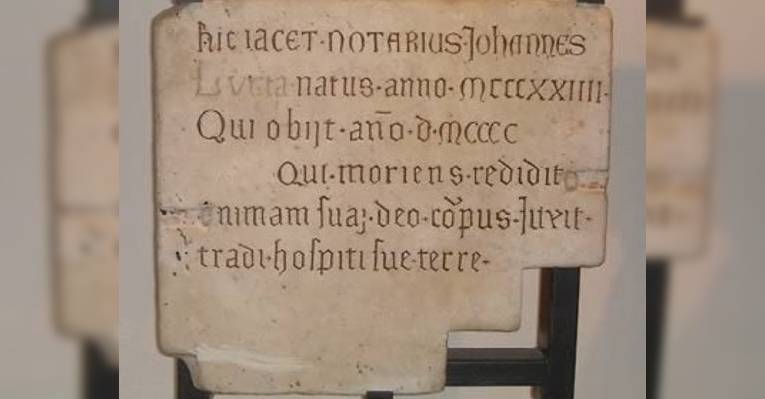 hic iacet·notarius·Johannes
natus·anno·mcccxxiiii·
Qui obijt·an̄o·d·mcccc
Qui·moriens·redidit
animam ſuaʒ·deo·cō̲pus·Juxit·
tradi·hoſpiti ſue·terre·